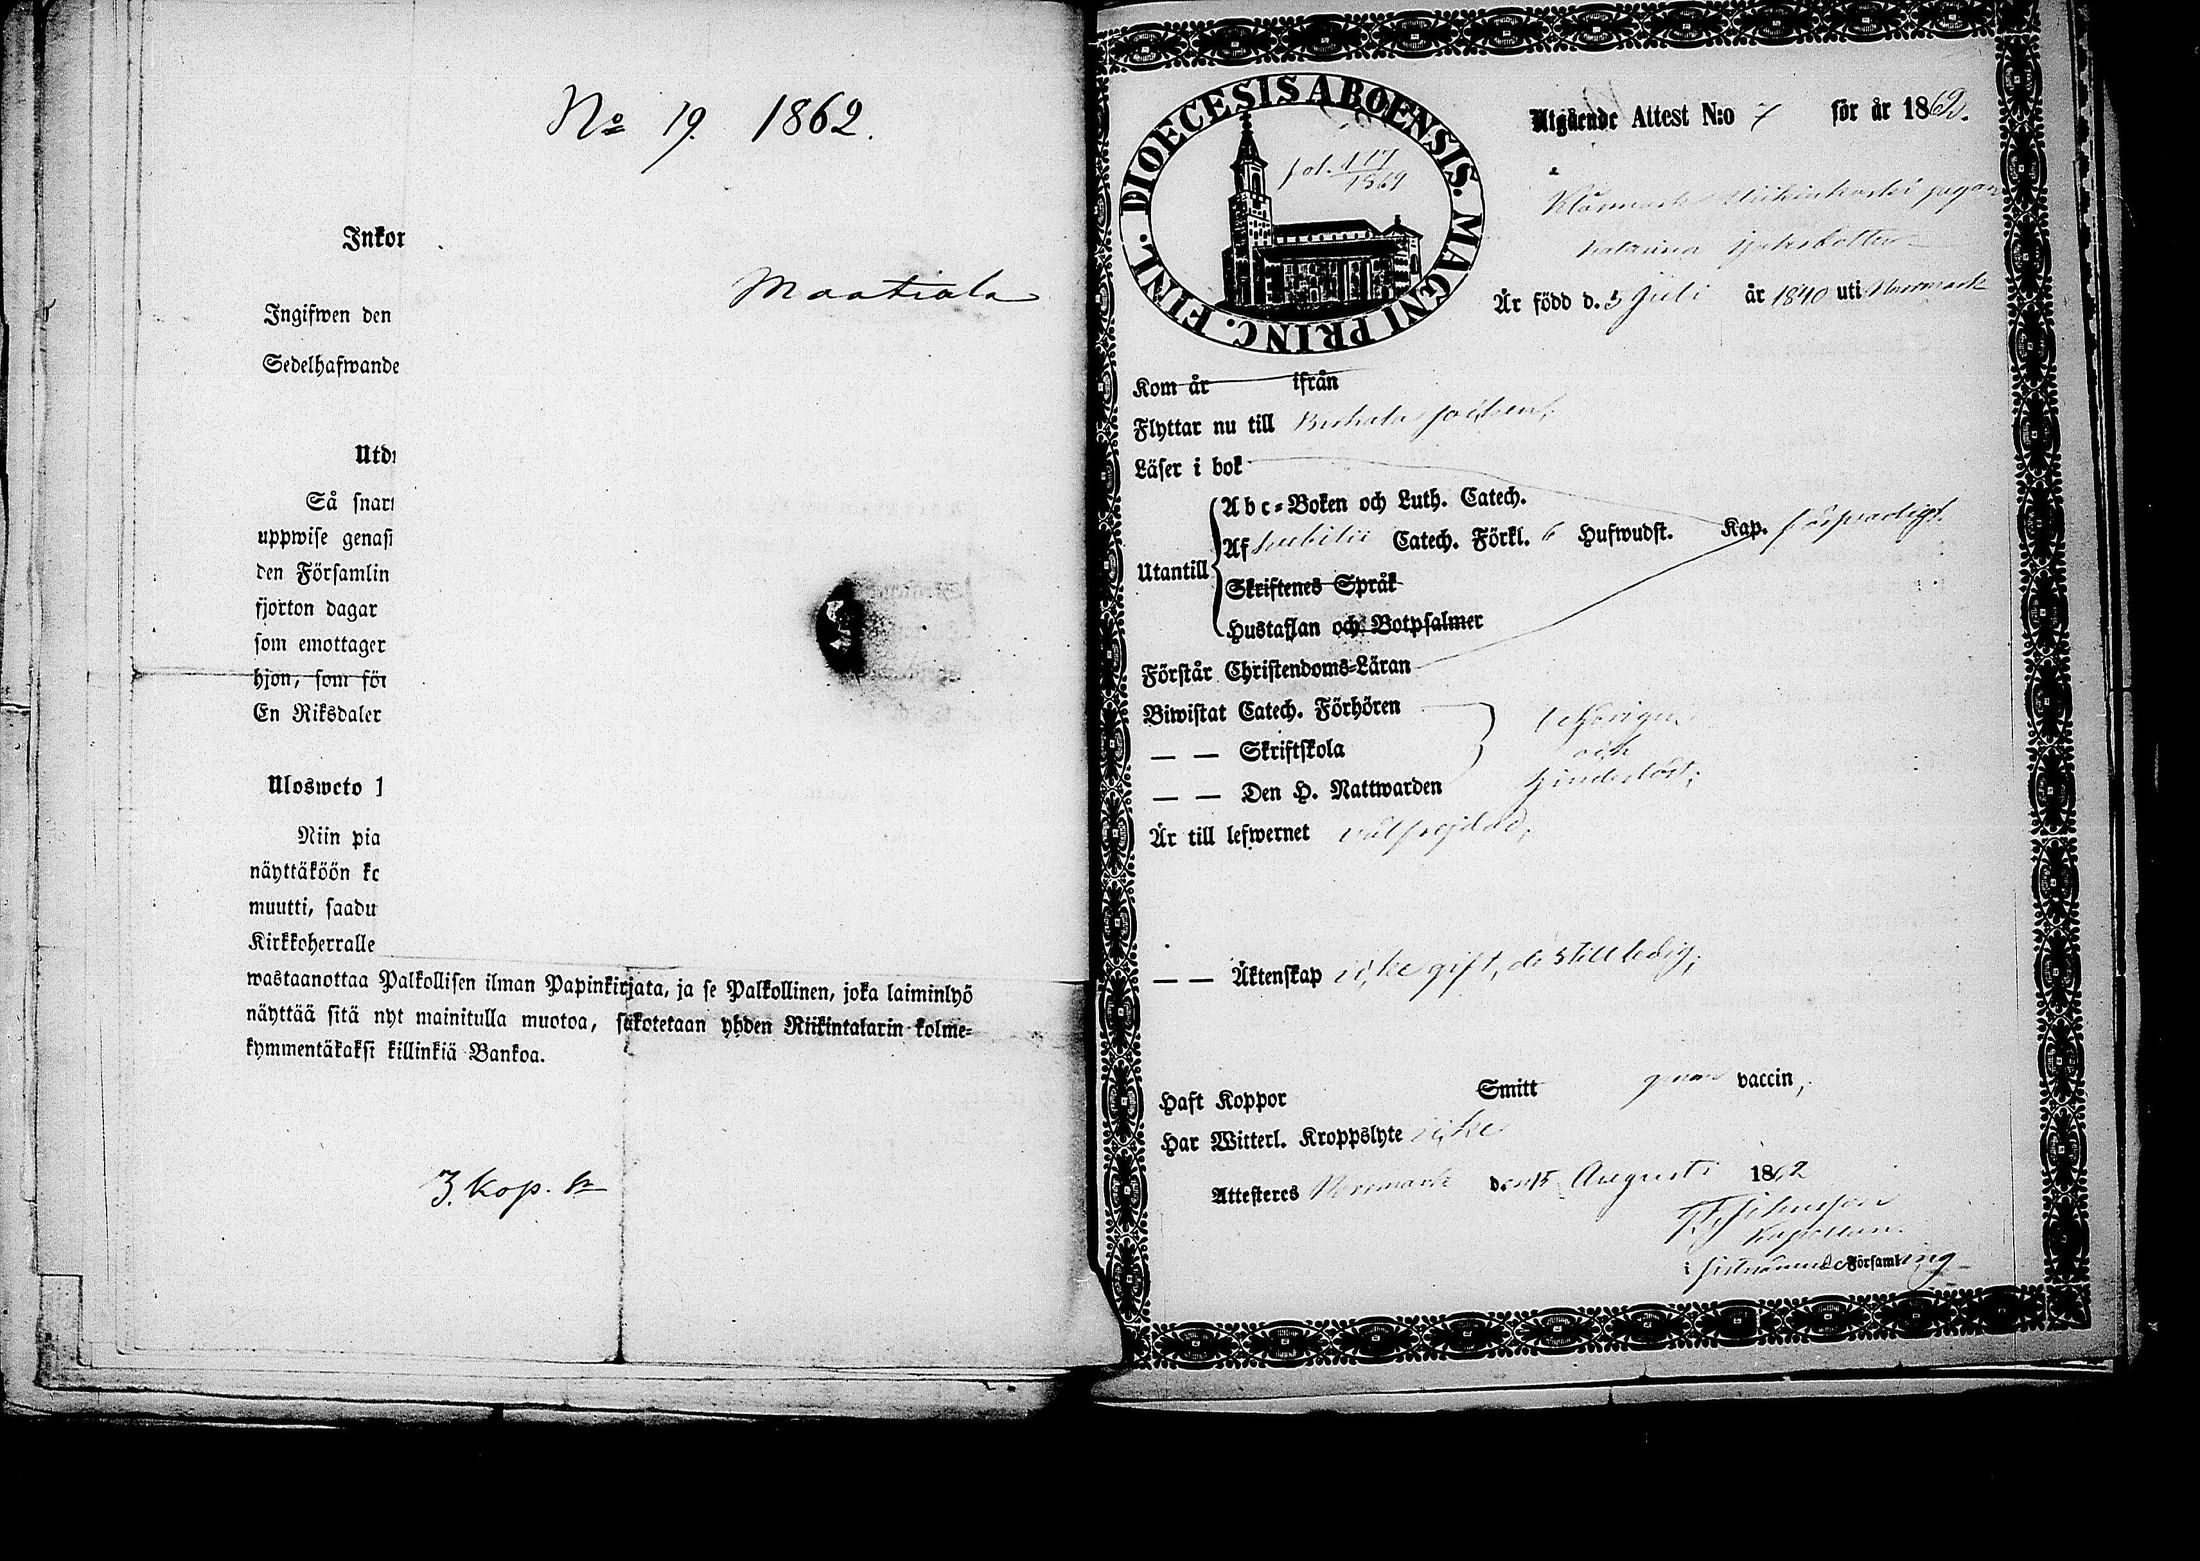 No 19. 1862.
Inkor
Maatiala
Ingifwen den
Sedelhafwande
Utdr
Så snart
uppwise genast
den Församlin
fjorton dagar
som emottager
hjon, som för
En Riksdaler
Ulosweto
Niin pia
näyttäköön ko
muutti, saadu
Kirkkoherralle
wastaanottaa Palkollisen ilman Papinkirjata, ja se Palkollinen, joka laiminlyö
näyttää sitä nyt mainitulla muotoa, sakotetaan yhden Riikintalarin kolme-
kymmentäkaksi killinkiä Bankoa.
3. kop. Sr
DIOECESIS ABOENSIS. MAGNI PRINC. FINL.
fol. 117
1869
Utgående Attest N:o 7 för år 1862.
Är född d. 5 Juli år 1840 uti Norrmark
Kom år ifrån
Flyttar nu till
Läser i bok
Utantill
Abc-Boken och Luth. Catech.
Af Svebilii Catech. Förkl. 6 Hufwudst. Kap. försvarligt.
Skriftenes Språk
Hustaflan och Botpsalmer
Förstår Christendoms-Läran
Biwistat Catech. Förhören
— — Skriftskola
— — Den H. Nattwarden
behörigen
och
hinderlöst;
Är till lefwernet välfrejdad;
— — Äktenskap icke gift, de still ledig;
Haft Koppor Smitt genom vaccin,
Har Witterl. Kroppslyte icke
Attesteres Norrmark den 15 Augusti 1862
Kapellan.
i sistnämnde Församling